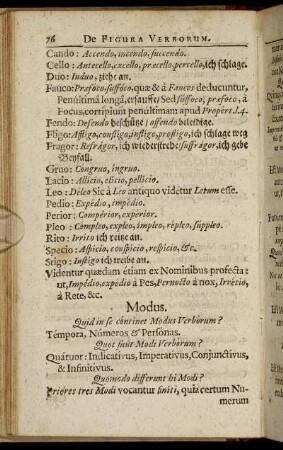 76 DE FIGURA VERBORUM.
Cando: Accendo, incendo, succendo.
Cello: Antecello, excello, præcello, percello, ich schlage.
Duo: Induo, ziehe an.
Fauco: Præfoco, suffoco, quæ & à Fauces deducuntur,
Penúltimâ longâ, ersauffe/ Sed súffoco, præfoco, à
Focus, corripiunt penultimam apud Propert. l. 4.
Fendo: Defendo beschütze/ offendo beleidige.
Fligo: Affligo, confligo, infligo, profligo, ich schlage weg
Fragor: Refrágor, ich wiederstrebe/ suffrágor, ich gebe
Beyfall.
Gruo: Congruo, ingruo.
Lacio: Allicio, elicio, pellicio.
Leo: Déleo Sic à Leo antiquo videtur Letum esse.
Pedio: Expédio, impédio.
Perior: Compérior, expérior.
Pleo: Cómpleo, expleo, impleo, répleo, súppleo.
Rito: Irrito ich reitze an.
Specio: Aspicio, conspicio, respicio, &c.
Stigo: Instigo ich treibe an.
Videntur quædam etiam ex Nominibus profecta:
ut, Impédio, expédio à Pes, Pernocto à nox, Irretio,
à Rete, &c.
Modus.
Quid in se continet Modus Verborum?
Témpora, Números & Personas.
Quot sunt Modi Verborum?
Quátuor: Indicativus, Imperativus, Conjunctivus,
& Infinitivus.
Quomodo differunt hi Modi?
Priores tres Modi vocantur finiti, quia certum Nu-
merum